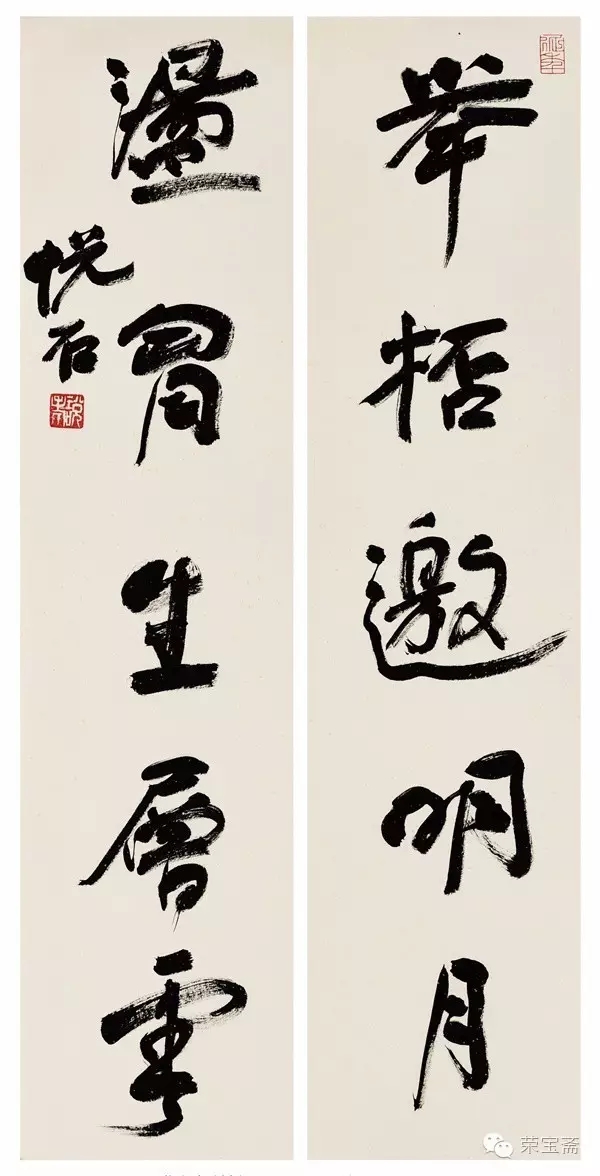 举桮邀明月
盪胷生層雲
悦石
荣宝斋